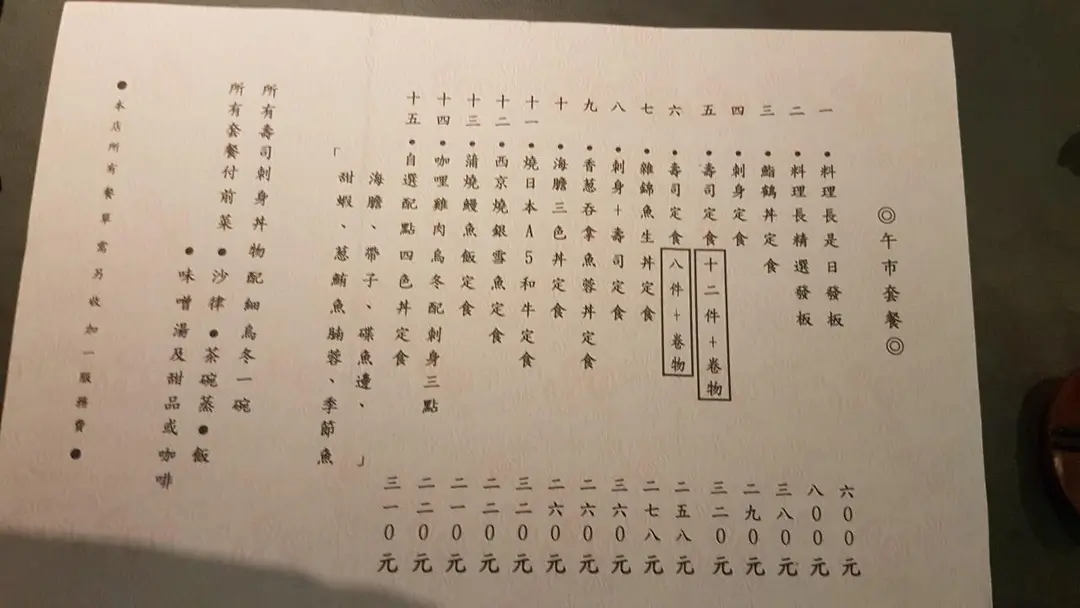 ◎午市套餐◎
一 •料理長是日發板 六00元
二 •料理長精選發板 八00元
三 •鮨鶴丼定食 三八0元
四 •刺身定食 二九0元
五 •壽司定食 十二件+卷物 三二0元
六 •壽司定食 八件+卷物 二五八元
七 •雜錦魚生丼定食 二七八元
八 •刺身+壽司定食 三六0元
九 •香葱吞拿魚蓉丼定食 二六0元
十 •海膽三色丼定食 二六0元
十一 •燒日本A5和牛定食 三二0元
十二 •西京燒銀雪魚定食 二二0元
十三 •蒲燒鰻魚飯定食 二一0元
十四 •咖哩雞肉烏冬配刺身三點 二二0元
十五 •自選配點四色丼定食 三一0元
「海膽、帶子、碟魚邊、
甜蝦、葱鮪魚腩蓉、季節魚」
所有壽司刺身丼物配細烏冬一碗
所有套餐付前菜•沙律•茶碗蒸•飯
•味噌湯及甜品或咖啡
•本店所有餐單需另收加一服務費•